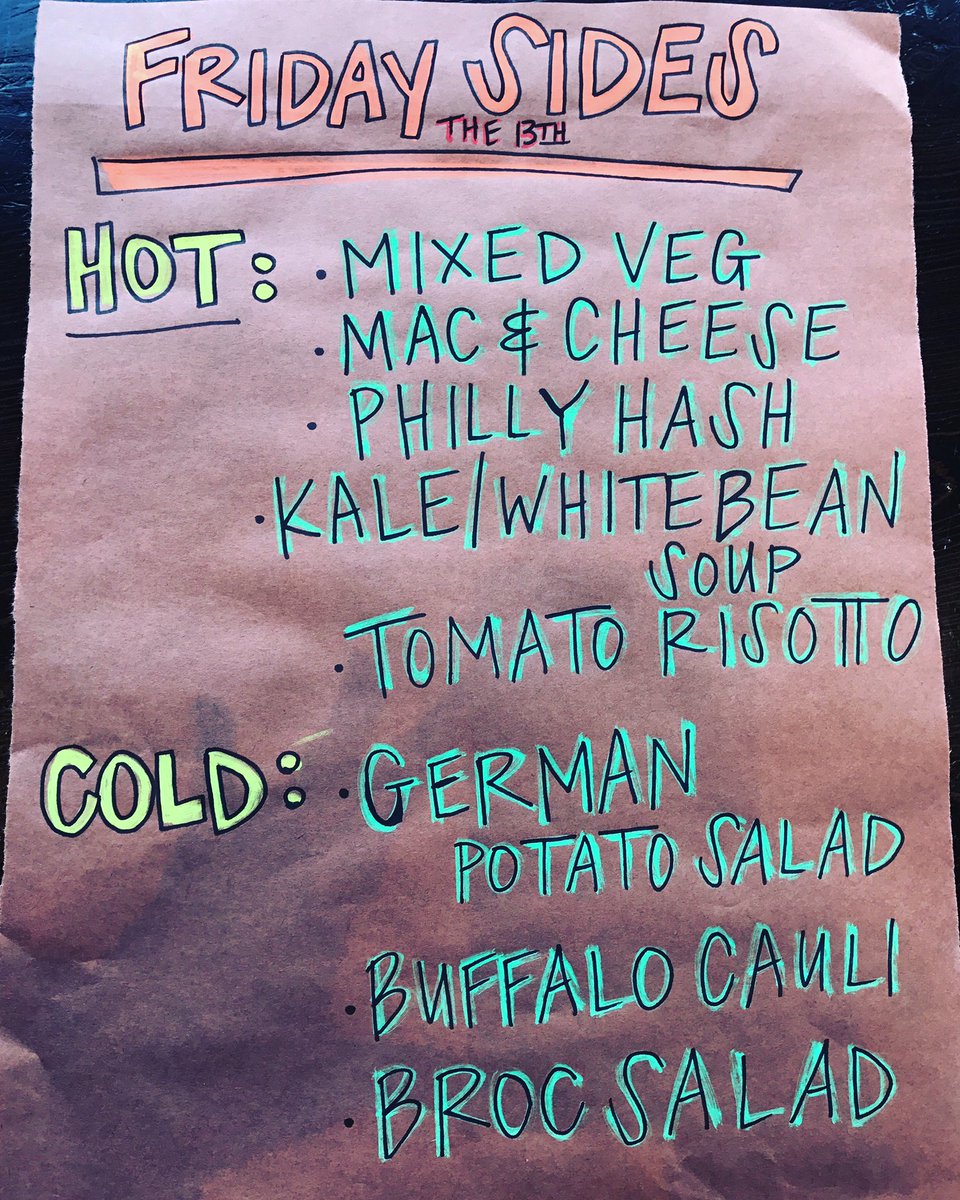 FRIDAY SIDES
THE 13TH
HOT: • MIXED VEG
• MAC & CHEESE
• PHILLY HASH
• KALE/WHITEBEAN
SOUP
• TOMATO RISOTTO
COLD: • GERMAN
POTATO SALAD
• BUFFALO CAULI
• BROC SALAD